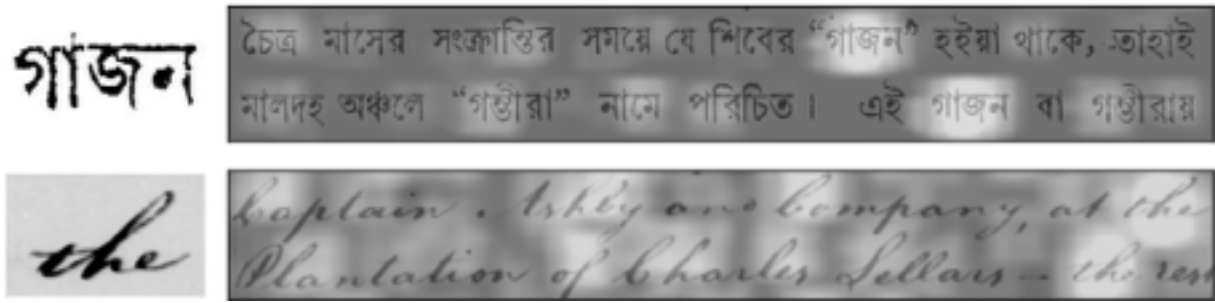 গাজন
চৈত্র মাসের সংক্রান্তির সময়ে যে শিবের “গাজন” হইয়া থাকে, তাহাই
মালদহ অঞ্চলে “গম্ভীরা” নামে পরিচিত। এই গাজন বা গম্ভীরায়
the
Captain . Ashby and Company, at the
Plantation of Charles Sellars — the res